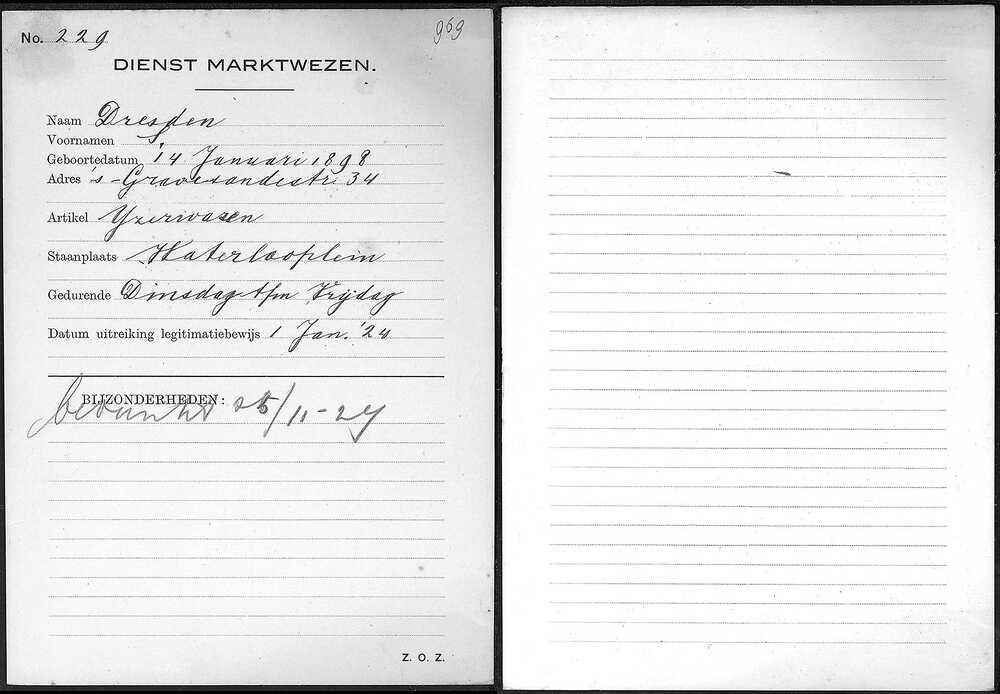 No. 229
969
DIENST MARKTWEZEN.
Naam Dresden
Voornamen S.
Geboortedatum 14 Januari 1898
Adres 's-Gravesandestr. 34
Artikel Yzerwaren
Staanplaats Waterlooplein
Gedurende Dinsdag t/m Vrijdag
Datum uitreiking legitimatiebewijs 1 Jan. '24
BIJZONDERHEDEN:
25/11-27
Z. O. Z.